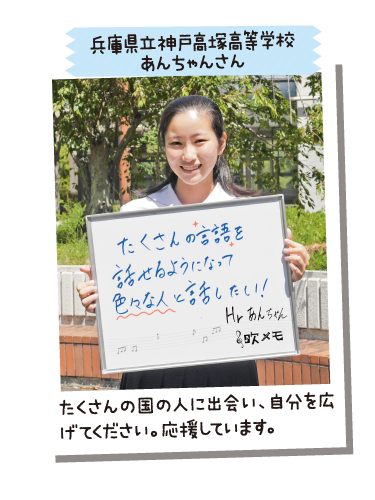 兵庫県立神戸高塚高等学校
あんちゃんさん
たくさんの言語を
話せるようになって
色々な人と話したい!
Hr あんちゃん
吹メモ
たくさんの国の人に出会い、自分を広
げてください。応援しています。